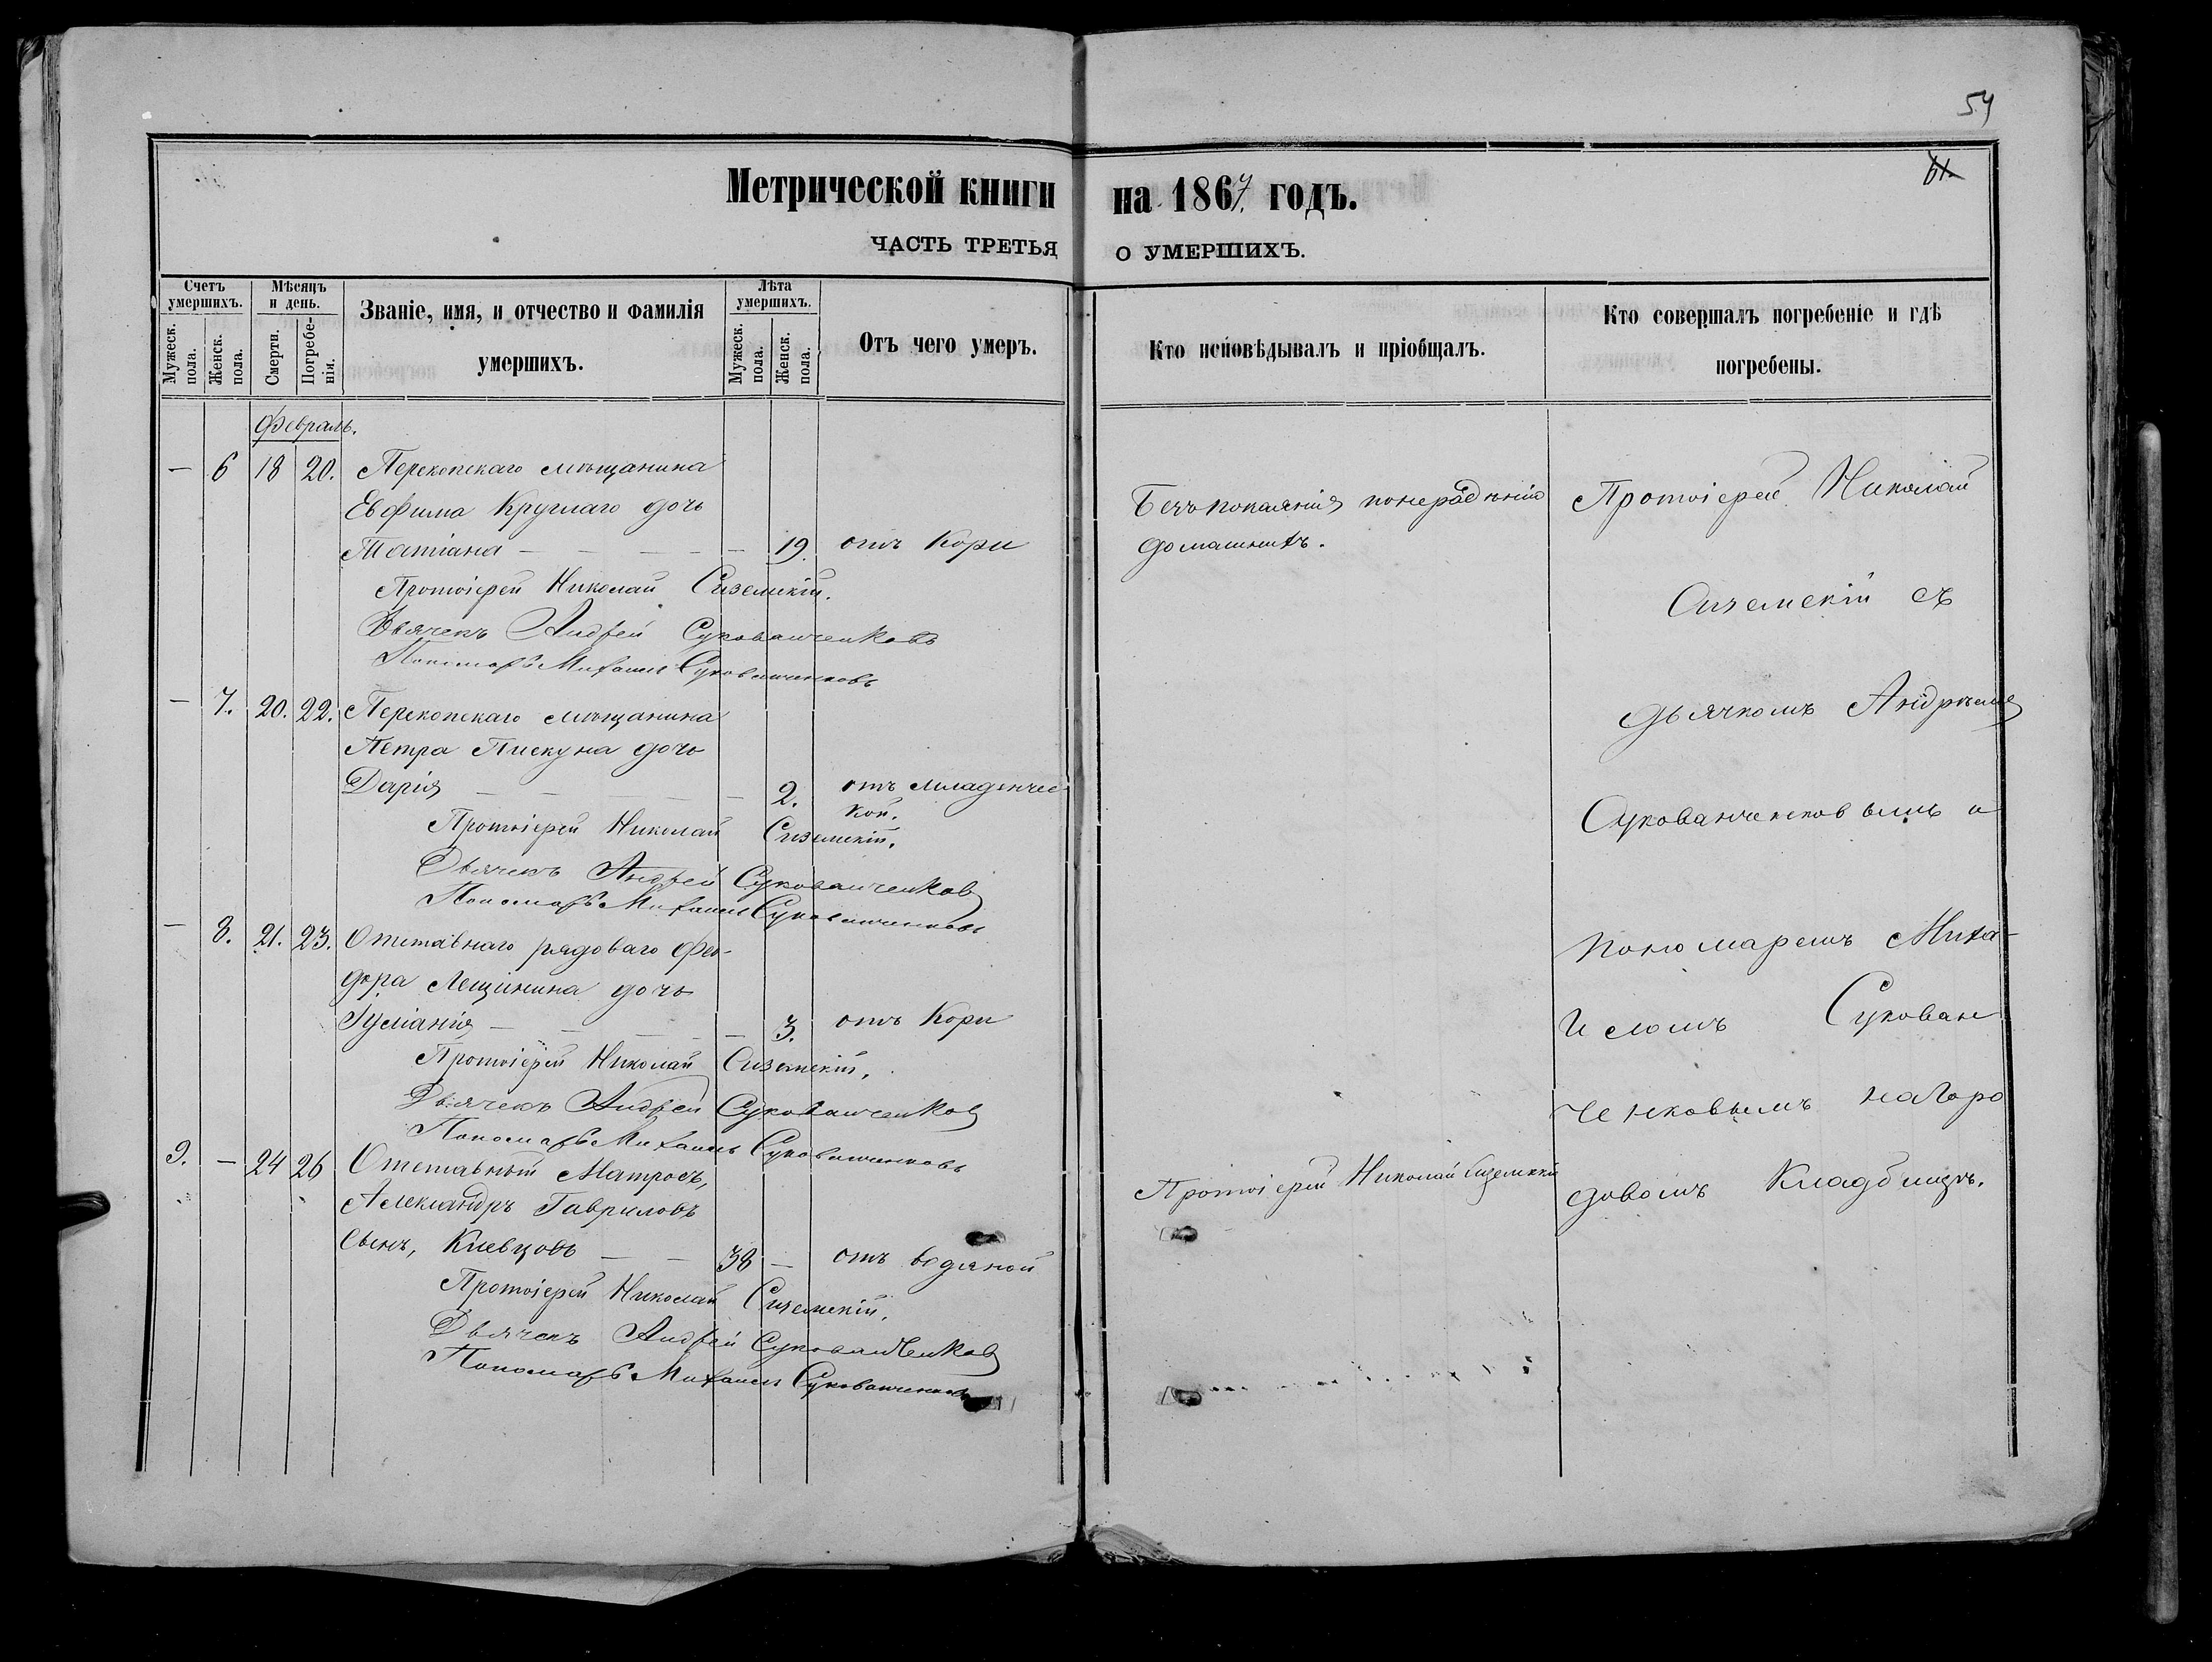 54
61.
Метрической книги на 1867. годъ.
ЧАСТЬ ТРЕТЬЯ О УМЕРШИХЪ.
Счетъ умершихъ.
Мужеск. пола.
Женск. пола.
Мѣсяцъ и день.
Смерти.
Погребе-нія.
Званіе, имя, и отчество и фамилія
умершихъ.
Лѣта умершихъ.
Мужеск. пола.
Женск. пола.
Отъ чего умеръ.
Кто исповѣдывалъ и пріобщалъ.
Кто совершалъ погребеніе и гдѣ
погребены.
Февраль.
— 6 18 20. Перекопскаго мѣщанина
Евфима Круглаго дочь
Татіана — — — — — 19. отъ Кори
Протоіерей Николай Сиземскій.
Дьячекъ Андрей Сукованченковъ
Пономарь Михаилъ Сукованченковъ
— 7. 20. 22. Перекопскаго мѣщанина
Петра Пискуна дочь
Дарія — — — — 2. отъ младенчес-
кой.
Протоіерей Николай Сиземскій.
Дьячекъ Андрей Сукованченков
Пономарь Михаилъ Сукованченковъ
— 8. 21. 23. Отставнаго рядоваго Фео-
дора Лещинина дочь
Іуліанія — — — — — 3. отъ Кори
Протоіерей Николай Сиземскій.
Дьячекъ Андрей Сукованченков
Пономарь Михаилъ Сукованченковъ
9. — 24 26 Отставный Матросъ,
Александръ Гавриловъ
Сынъ, Киевцовъ — — 38 — отъ водяной
Протоіерей Николай Сиземскій.
Дьячекъ Андрей Сукованченков
Пономарь Михаилъ Сукованченковъ
Безъ покаянія понерадѣнію
домашнихъ.
Протоіерей Николай Сиземскій
Протоіерей Николай
Сиземскій съ
дьячкомъ Андреемъ
Сукованченковымъ и
пономаремъ Миха-
иломъ Сукован
ченковымъ на Горо
довомъ Кладбищѣ.